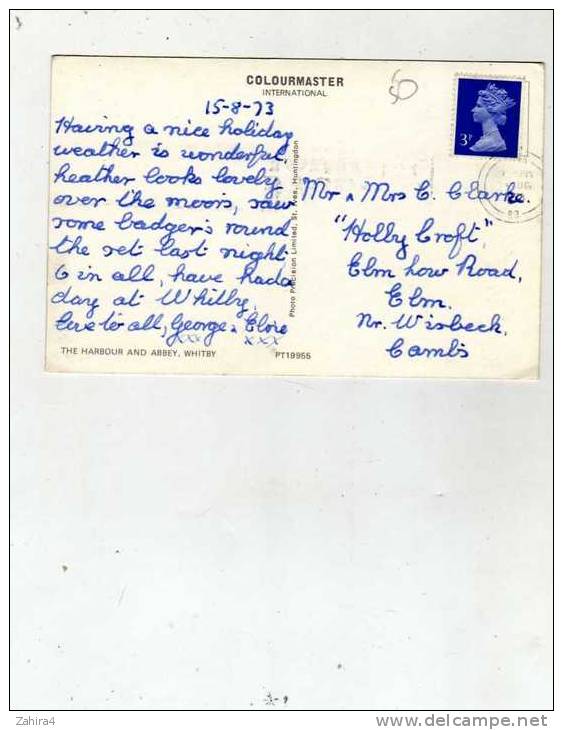 COLOURMASTER
INTERNATIONAL
15-8-73
Having a nice holiday
weather is wonderful.
heather looks lovely
over the moors, saw
some badgers round
the set last night
6 in all, have had a
day at Whitby,
Love to all, George &
xxx xxx
THE HARBOUR AND ABBEY, WHITBY
PT19955
Photo Precision Limited, St. Ives, Huntingdon
60
3P
Mr & Mrs C. Clarke.
"Holly Croft",
Elm Low Road,
Elm.
Nr. Wisbeck,
Cambs
Zahira4
www.delcampe.net